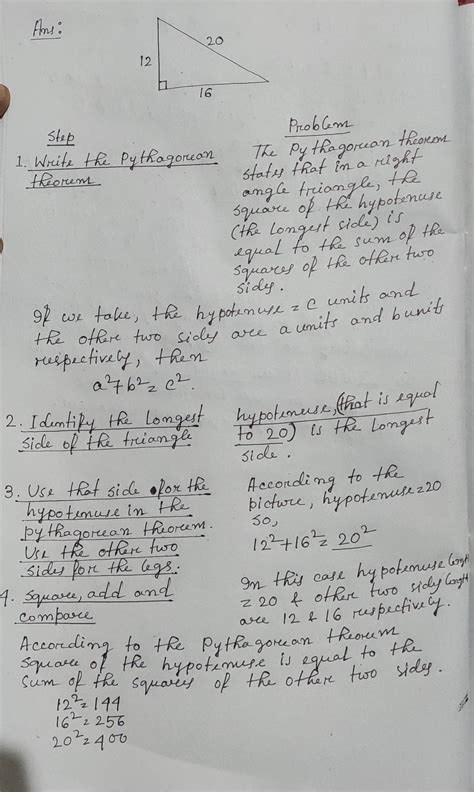 Ans:
12
20
16
Step
1. Write the Pythagorean
theorem
Problem
The Pythagorean theorem
states that in a right
angle triangle, the
square of the hypotenuse
(the longest side) is
equal to the sum of the
squares of the other two
sides.
If we take, the hypotenuse = c units and
the other two sides are a units and b units
respectively, then
a²+b² = c².
2. Identify the longest
side of the triangle
hypotenuse, (that is equal
to 20) is the longest
side.
3. Use that side for the
hypotenuse in the
pythagorean theorem.
Use the other two
sides for the legs.
According to the
picture, hypotenuse = 20
so,
12²+16² = 20²
4. Square, add and
compare
In this case hypotenuse length
= 20 & other two sides length
are 12 & 16 respectively.
According to the Pythagorean theorem
square of the hypotenuse is equal to the
sum of the squares of the other two sides.
12² = 144
16² = 256
20² = 400